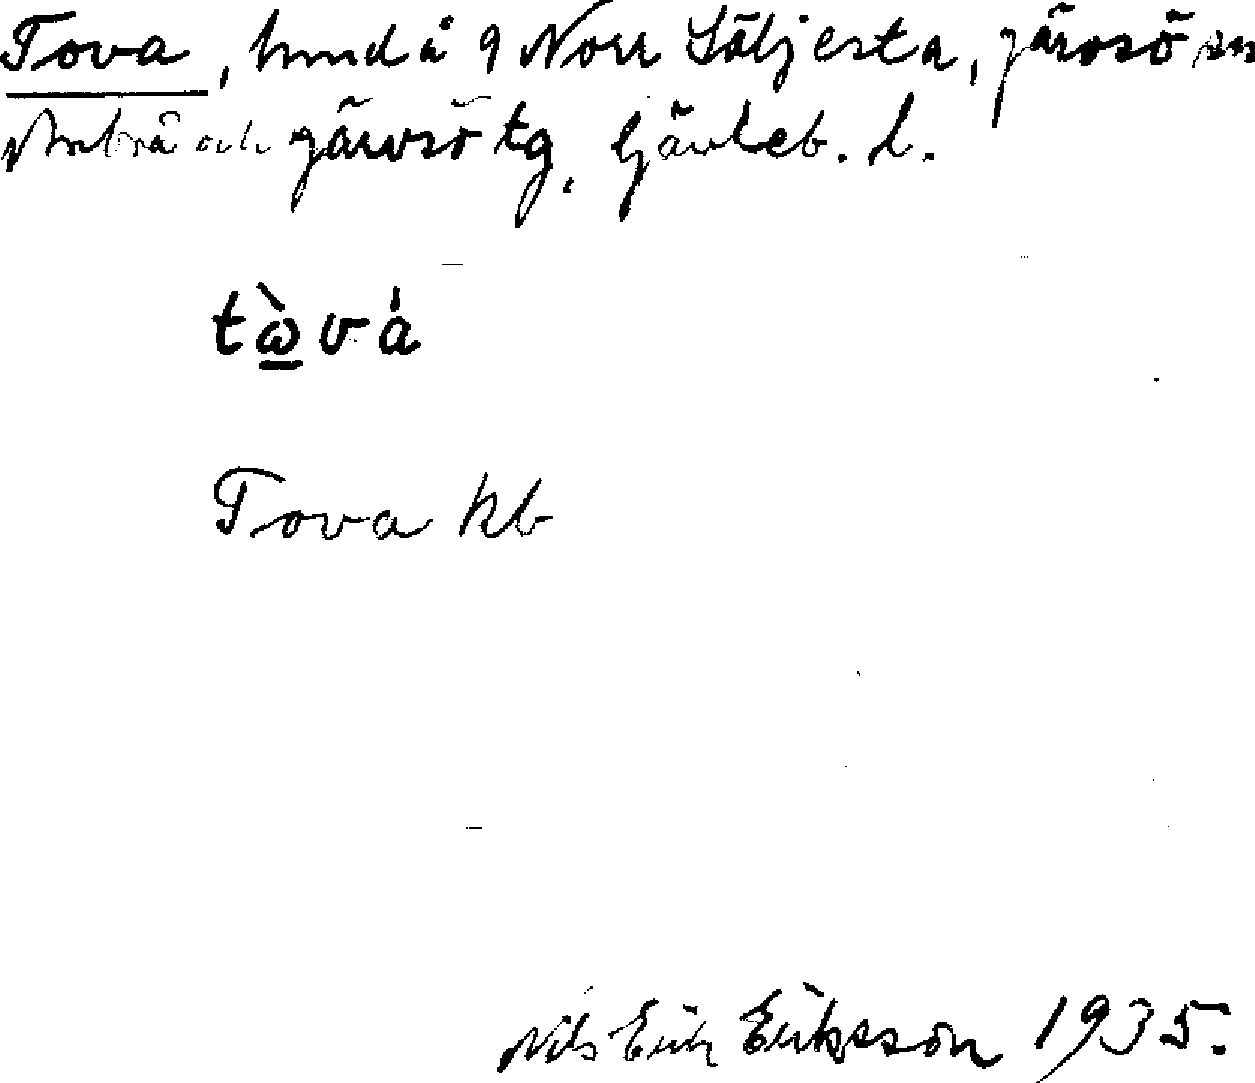 Tova, hmd å 9 Norr Säljesta, Järvsö sn
Arbrå och Järvsö tg, Gävleb. l.
tὼ̲vá
Tova kb
Nils Erik Eriksson 1935.